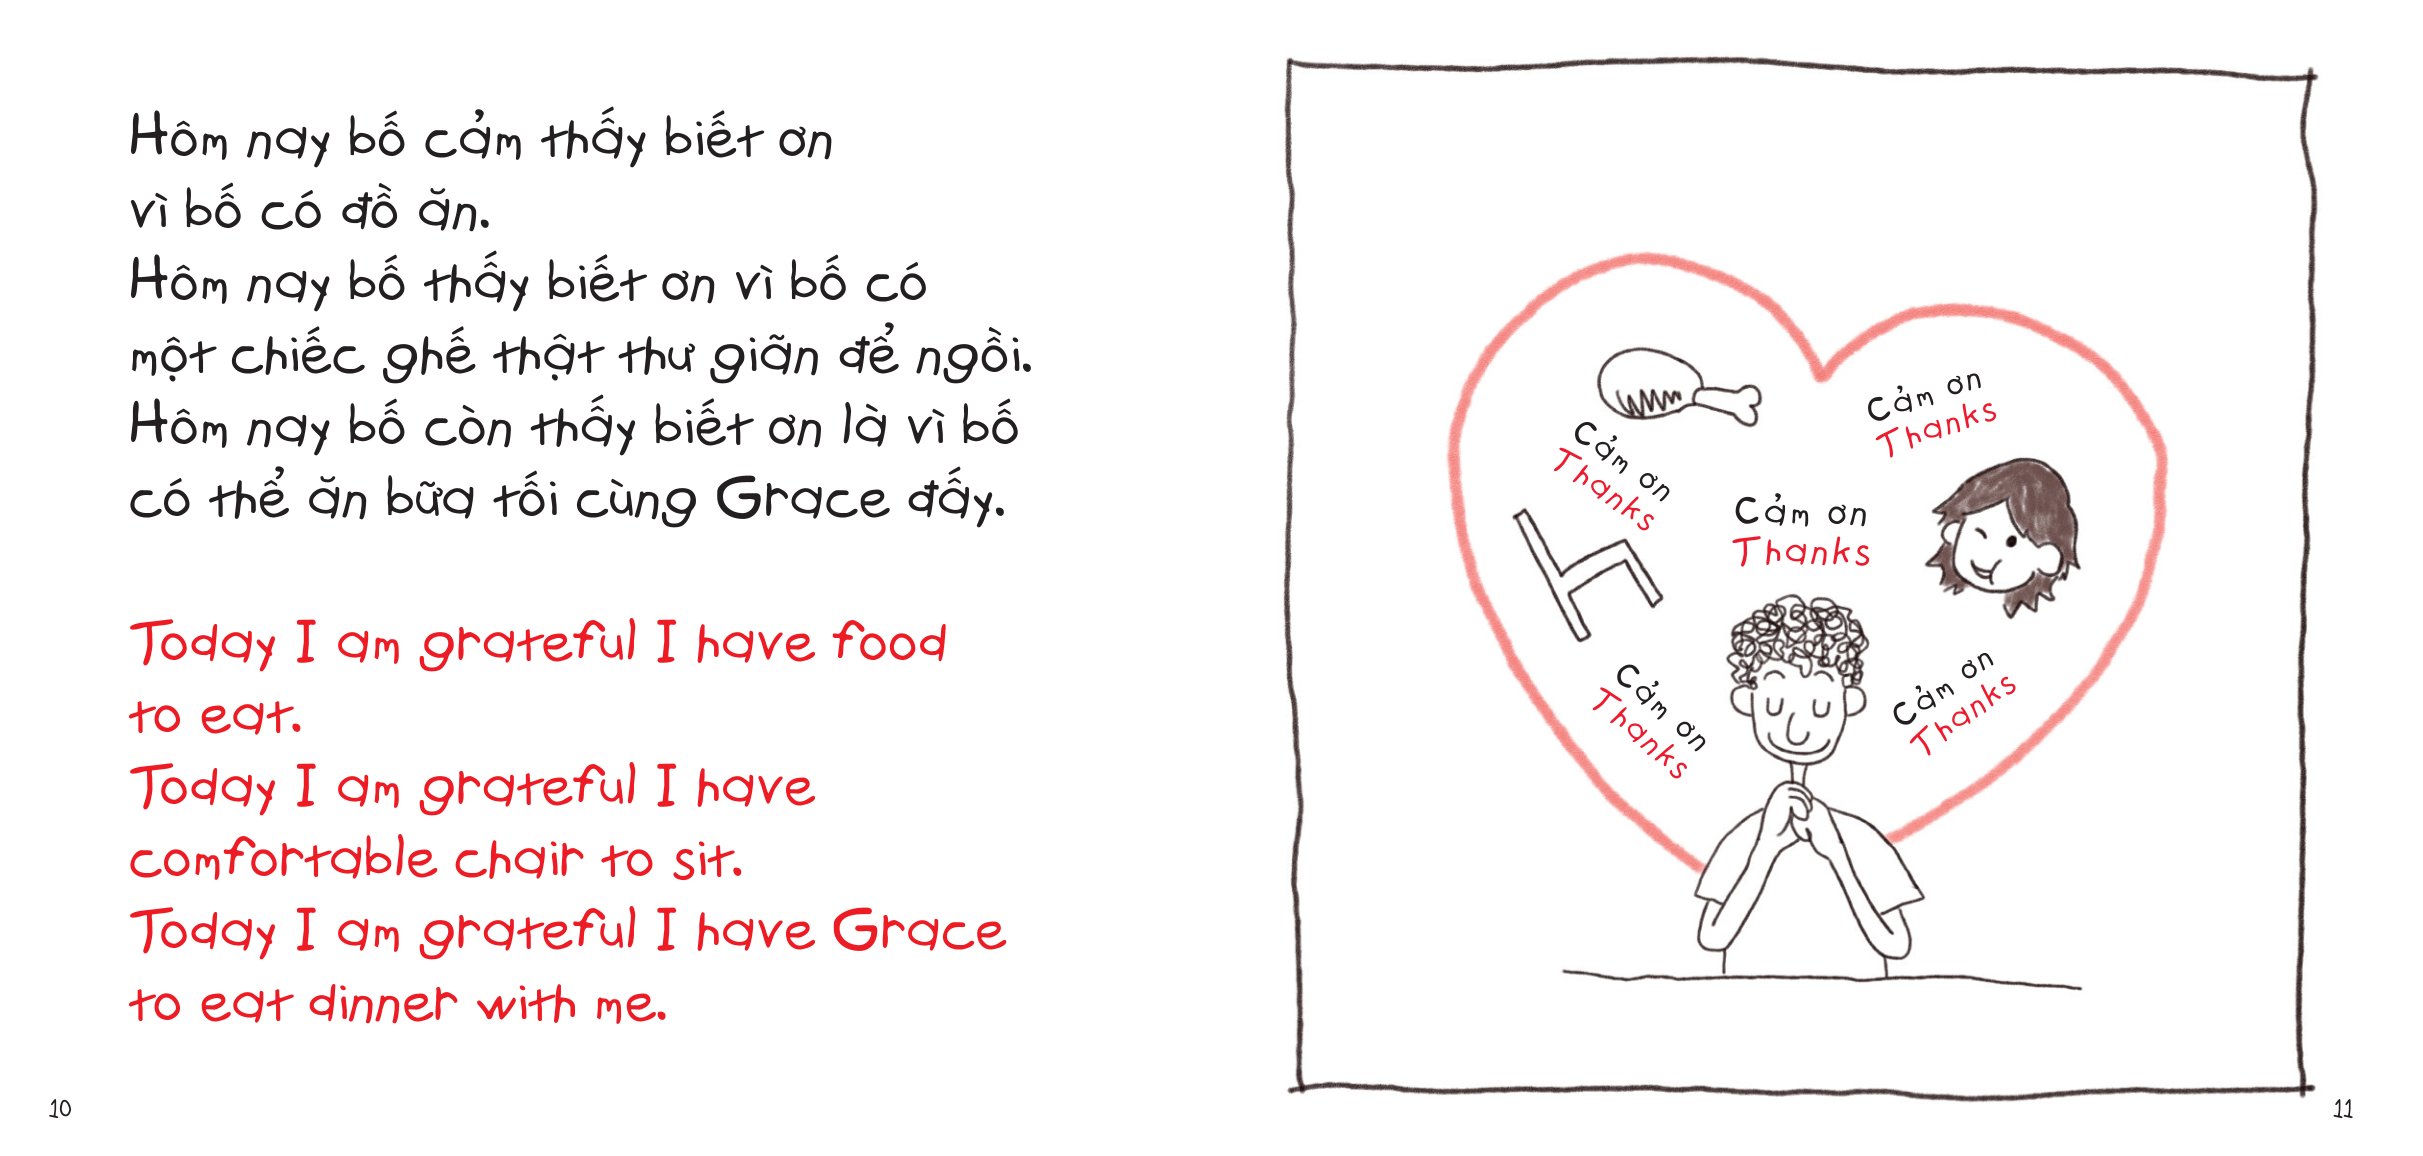 Hôm nay bố cảm thấy biết ơn
vì bố có đồ ăn.
Hôm nay bố thấy biết ơn vì bố có
một chiếc ghế thật thư giãn để ngồi.
Hôm nay bố còn thấy biết ơn là vì bố
có thể ăn bữa tối cùng Grace đấy.
Today I am grateful I have food
to eat.
Today I am grateful I have
comfortable chair to sit.
Today I am grateful I have Grace
to eat dinner with me.
10
Cảm ơn
Thanks
Cảm ơn
Thanks
Cảm ơn
Thanks
Cảm ơn
Thanks
Cảm ơn
Thanks
11